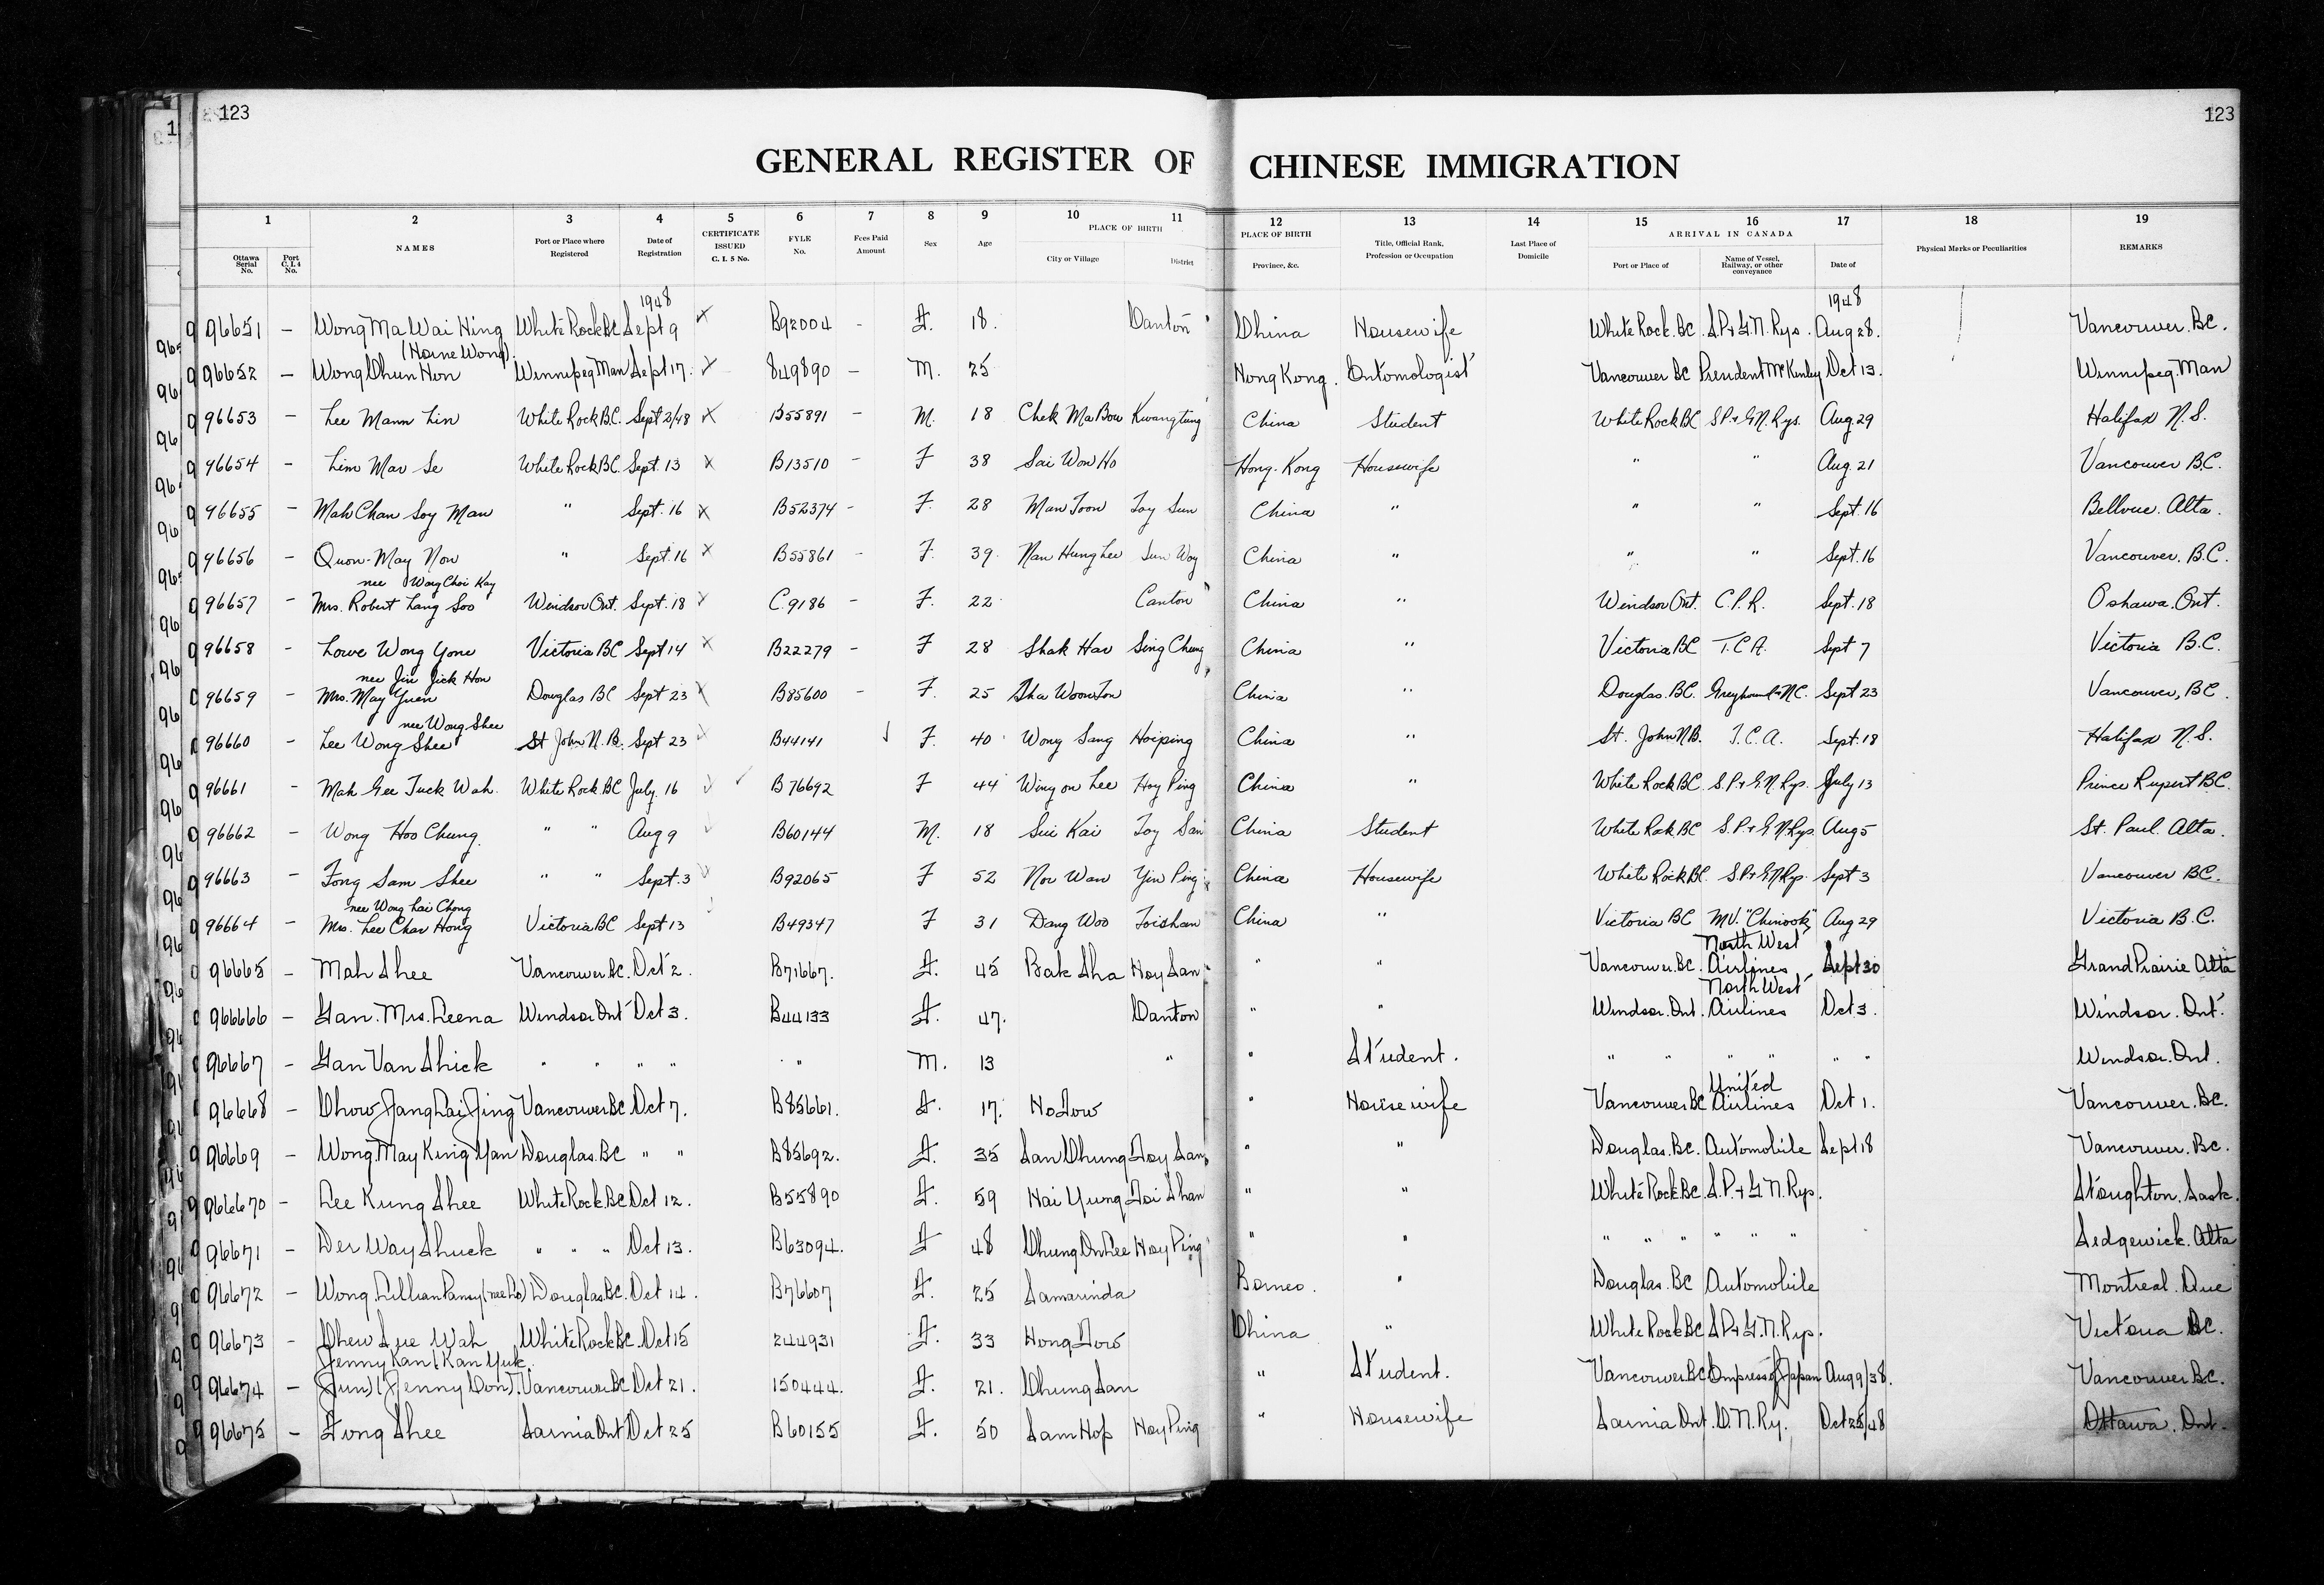 123 123
GENERAL REGISTER OF CHINESE IMMIGRATION
1 2 3 4 5 6 7 8 9 10 11 12 13 14 15 16 17 18 19
Ottawa Serial No. Port C.I.4 No. NAMES Port or Place where Registered Date of Registration CERTIFICATE ISSUED C. I. 5 No. FYLE No. Fees Paid Amount Sex Age PLACE OF BIRTH City or Village District PLACE OF BIRTH Province, &c. Title, Official Rank, Profession or Occupation Last Place of Domicile ARRIVAL IN CANADA Port or Place of Name of Vessel, Railway, or other conveyance Date of Physical Marks or Peculiarities REMARKS
1948 1948
96651 – Wong Ma Wai Hing White Rock BC Sept 9 x B92004 - F. 18. Canton China Housewife White Rock. BC. S.P.+G.N. Rys. Aug 28. Vancouver. BC.
(Horne Wong)
96652 – Wong Chun Hon Winnipeg Man Sept 17. ✓ 849890 – M. 25 Hong Kong. Entomologist Vancouver BC President McKinley Oct 13. Winnipeg. Man
96653 – Lee Mann Lin White Rock B.C. Sept 2/48 x B55891 – M. 18 Chek Ma Bow Kwangtung China Student White Rock BC S.P.+G.N. Rys. Aug. 29 Halifax N.S.
96654 – Lim Mar Se White Rock B.C. Sept. 13 x B13510 – F 38 Sai Won Ho Hong-Kong Housewife " " Aug. 21 Vancouver B.C.
96655 – Mah Chan Soy Man " Sept. 16 x B52374 – F. 28 Man Toon Toy Sun China " " " Sept. 16 Bellvue. Alta.
96656 – Quon-May Non " Sept. 16 x B55861 – F. 39. Nan Hung Lee Sun Woy China " " " Sept. 16 Vancouver. B.C.
nee Wong Choi Kay
96657 – Mrs. Robert Lang Soo Windsor Ont. Sept. 18 x C.9186 – F. 22 Canton China " Windsor Ont. C.P.R. Sept. 18 Oshawa. Ont.
96658 – Lowe Wong Yone Victoria BC Sept 14 x B22279 – F 28 Shak Hav Sing Chung China " Victoria BC T.C.A. Sept 7 Victoria B.C.
nee Jin Jick Hon
96659 – Mrs. May Yuen Douglas BC Sept 23 x B85600 – F. 25 Sha Woon Ton China " Douglas. B.C. Greyhound + N.C. Sept 23 Vancouver, BC.
nee Wong Shee
96660 – Lee Wong Shee St John N.B. Sept 23 ✓ B44141 ✓ F. 40 Wong Sang Hoiping China " St. John N.B. T.C.A. Sept. 18 Halifax N.S.
96661 – Mah Gee Tuck Wah. White Rock. BC July. 16 ✓ ✓ B76692 F 44 Wing on Lee Hoy Ping China " White Rock BC. S.P.+G.N. Rys. July 13 Prince Rupert BC.
96662 – Wong Hoo Chung. " " Aug 9 ✓ B60144 M. 18 Sui Kai Toy San China Student White Rock BC S.P.+G.N. Rys. Aug 5 St. Paul. Alta.
96663 – Fong Sam Shee " " Sept. 3 ✓ B92065 F 52 Nor Wan Yin Ping China Housewife White Rock BC. S.P.+G.N. Rys. Sept 3 Vancouver BC.
nee Wong Lai Chong
96664 – Mrs. Lee Char Hong Victoria BC Sept 13 ✓ B49347 F 31 Dang Woo Toishan China " Victoria BC MV. "Chinook" Aug 29 Victoria B.C.
North West
96665 – Mah Shee Vancouver. BC. Oct 2. B71667. F. 45 Bak Sha Hoy San " " Vancouver. BC. Airlines Sept 30 Grand Prairie Alta
North West
966666 – Gan. Mrs. Leena Windsor Ont Oct 3. B44133 F. 47. Canton " " Windsor. Ont. Airlines Oct 3. Windsor. Ont.
96667 – Gan Van Shick " " " " " M. 13 " " Student. " " " " " " Windsor. Ont.
United
96668 – Chow Jang Lai Jing Vancouver BC Oct 7. B85661. F. 17. Ho Tow " Housewife Vancouver BC Airlines Oct 1. Vancouver. BC.
96669 – Wong. May King Yan Douglas. BC " " B85692. F. 35 San Chung Toy San " " Douglas. BC. Automobile Sept 18 Vancouver. BC.
966670 – Lee Kung Shee White Rock. BC Oct 12. B55890 F. 59 Hai Yung Toi Shan " " White Rock BC. S.P.+G.N. Rys. Stoughton. Sask.
96671 – Der Way Shuck " " " Oct 13. B63094. F 48 Chung On Lee Hoy Ping " " " " " " " " Sedgewick. Alta
96672 – Wong. Lillian Pansy (nee Lo) Douglas. BC. Oct 14. B76607 F. 25 Samarinda Borneo. " Douglas. BC Automobile Montreal. Que
96673 – Chew Sue Wah White Rock BC. Oct 15 244931 F. 33 Hong Tow China " White Rock BC S.P.+G.N. Rys. Victoria BC.
Jenny Kan (Kan Yuk
96674 – Jun) (Jenny Don). Vancouver BC Oct 21. 150444. F. 21. Chung San " Student. Vancouver BC Empress of Japan Aug 9/38. Vancouver BC.
96675 – Fong Shee Sarnia Ont Oct 25 B60155 F. 50 Sam Hop Hoy Ping " Housewife Sarnia Ont. C.N. Ry. Oct 25/48 Ottawa. Ont.